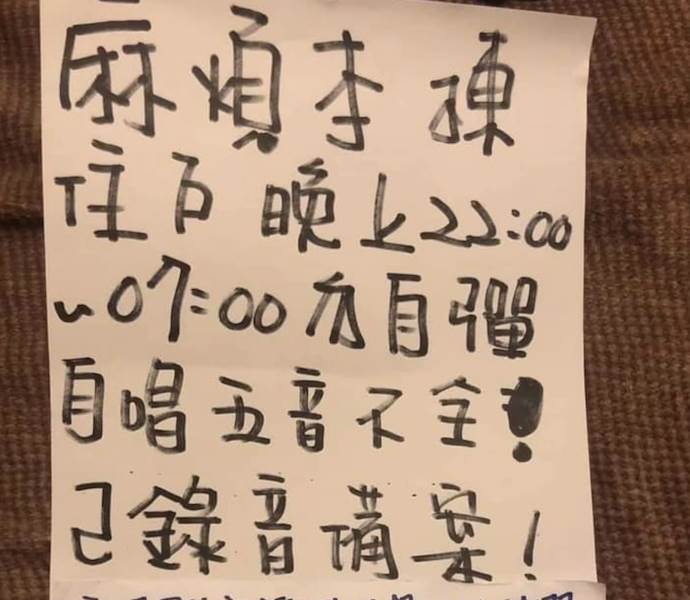 麻煩李棟
住戶晚上22:00
~07:00勿自彈
自唱五音不全!
己錄音備案!